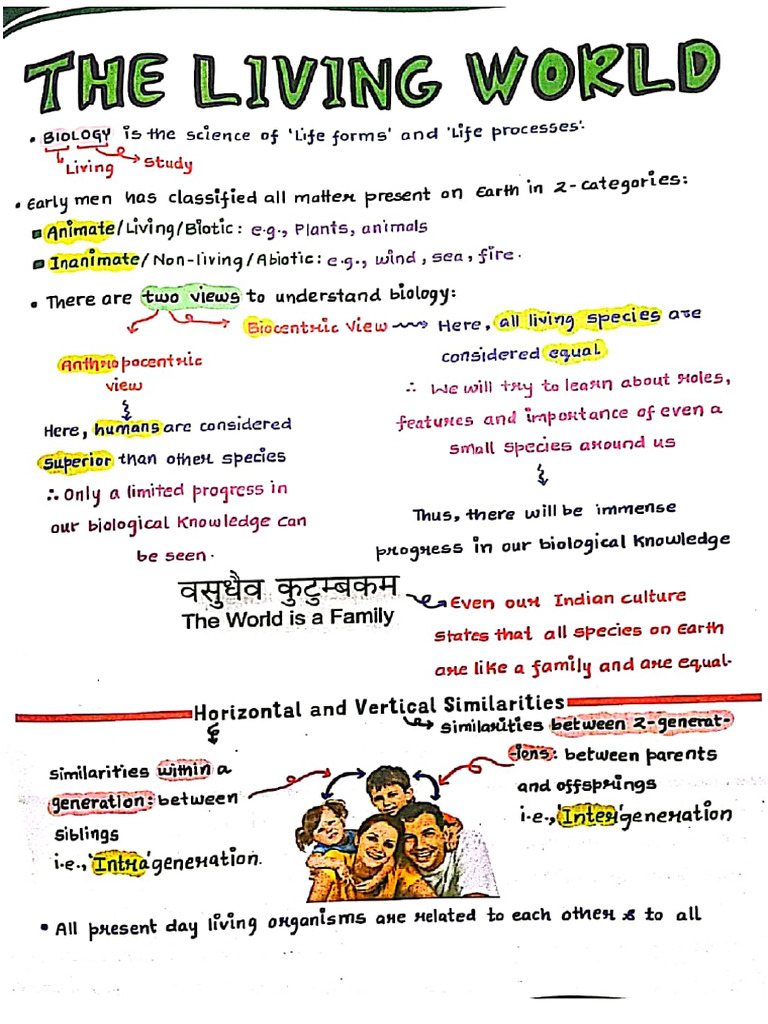 THE LIVING WORLD
• BIOLOGY is the science of 'Life forms' and 'Life processes'.
Living Study
• Early men has classified all matter present on Earth in 2-categories:
Animate/Living/Biotic: e.g., Plants, animals
Inanimate/Non-living/Abiotic: e.g., wind, sea, fire.
• There are two views to understand biology:
Biocentric view Here, all living species are
considered equal
∴ We will try to learn about roles,
features and importance of even a
small species around us
Thus, there will be immense
progress in our biological knowledge
Anthropocentric
view
Here, humans are considered
superior than other species
∴ Only a limited progress in
our biological knowledge can
be seen.
वसुधैव कुटुम्बकम
The World is a Family
Even our Indian culture
states that all species on Earth
are like a family and are equal.
Horizontal and Vertical Similarities
similarities between 2-generat-
-ions: between parents
and offsprings
i.e., 'Inter'generation
similarities within a
generation: between
siblings
i.e., 'Intra'generation.
• All present day living organisms are related to each other & to all